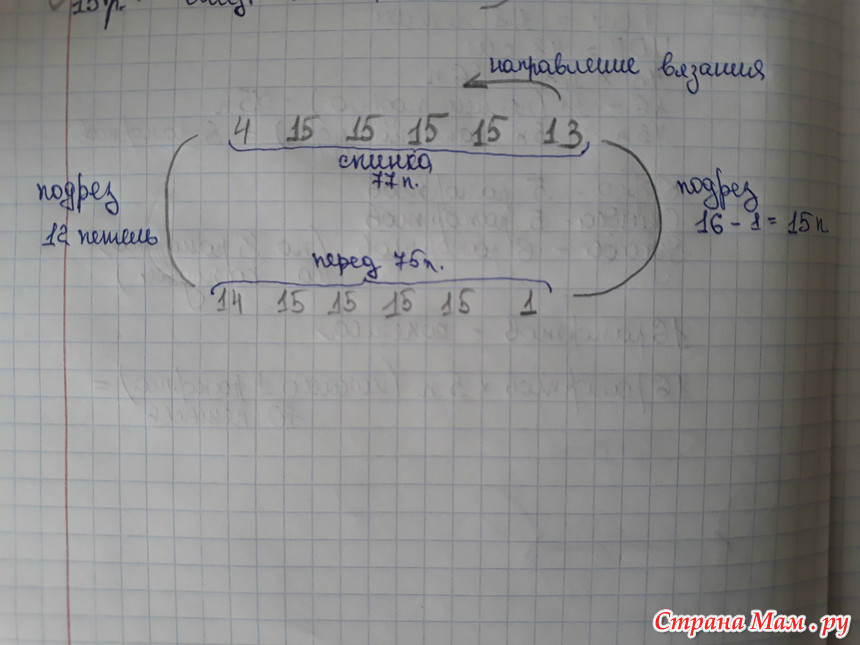 15р.
направление вязания
4 15 15 15 15 13
спинка
77п.
подрез
12 петель
подрез
16 - 1 = 15п
перед 75п.
14 15 15 15 15 1
Страна Мам.ру